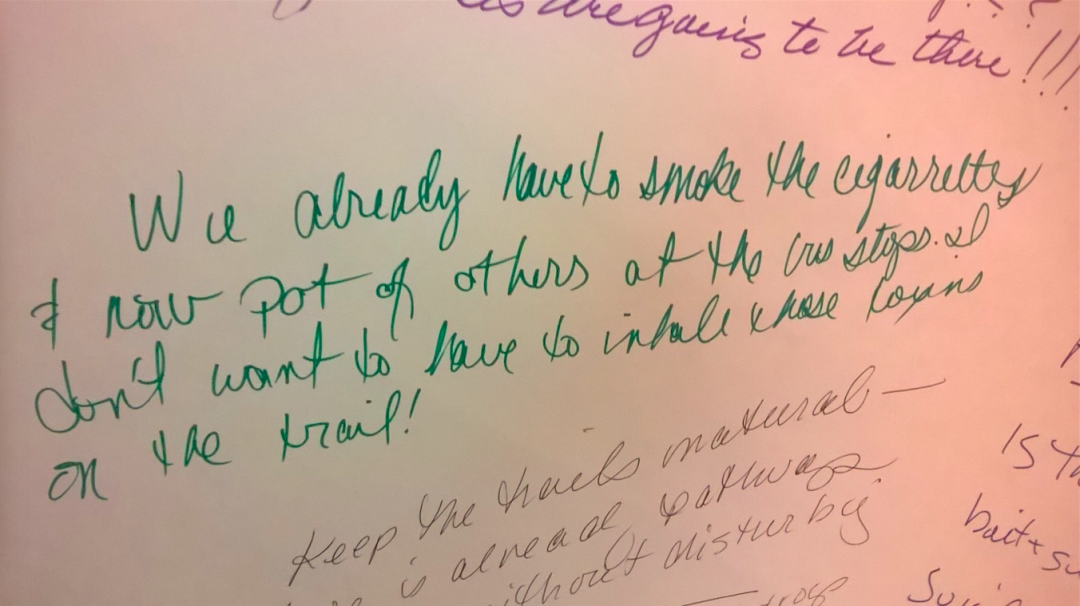 are going to be there!!!
We already have to smoke the cigarrettes
& now pot of others at the bus stops. I
don't want to have to inhale those toxins
on the trail!
Keep the trails natural —
is alread pathways
without disturbig
Is th
bait & su